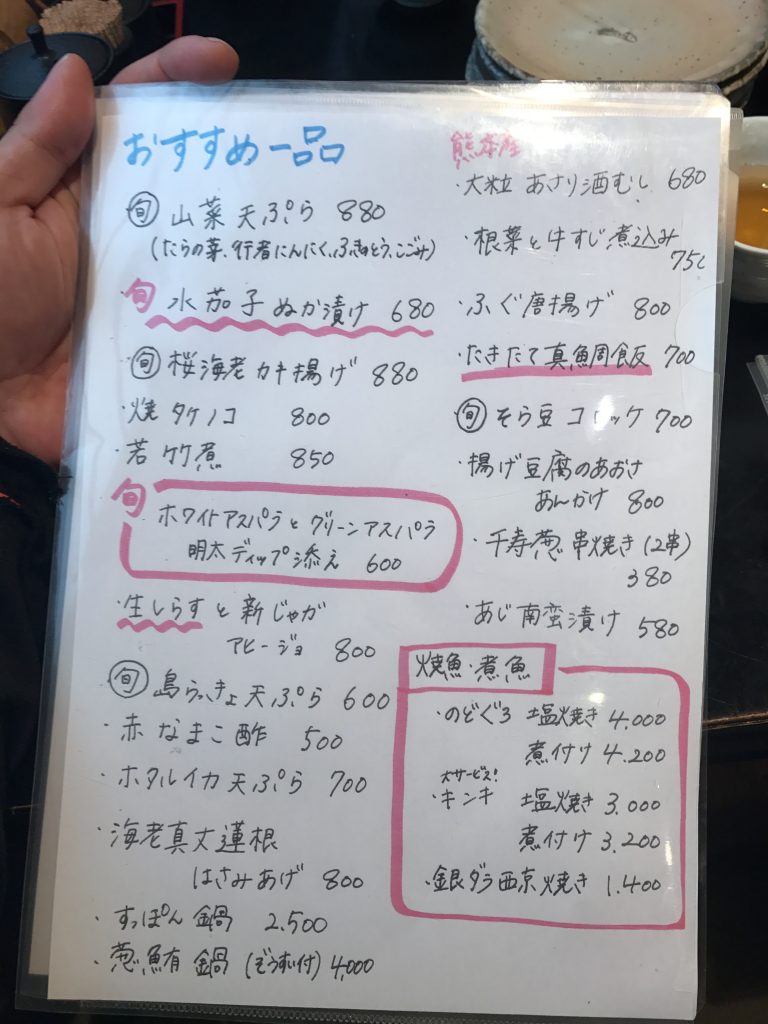 おすすめ一品
旬 山菜天ぷら 880
(たらの菜、行者にんにく、ふきのとう、こごみ)
旬 水茄子ぬか漬け 680
旬 桜海老カキ揚げ 880
・焼タケノコ 800
・若竹煮 850
旬 ホワイトアスパラとグリーンアスパラ
明太ディップ添え 600
・生しらすと新じゃが
アヒージョ 800
旬 島らっきょ天ぷら 600
・赤なまこ酢 500
・ホタルイカ天ぷら 700
・海老真丈蓮根
はさみあげ 800
・すっぽん鍋 2,500
・葱鮪鍋(ぞうすい付) 4,000
熊本産
・大粒あさり酒むし 680
・根菜と牛すじ煮込み
750
・ふぐ唐揚げ 800
・たきたて真鯛飯 700
旬 そら豆コロッケ 700
・揚げ豆腐のあおさ
あんかけ 800
・千寿葱串焼き(2串)
380
・あじ南蛮漬け 580
焼魚・煮魚
・のどぐろ 塩焼き 4,000
煮付け 4,200
大サービス!
・キンキ 塩焼き 3,000
煮付け 3,200
・銀ダラ西京焼き 1,400